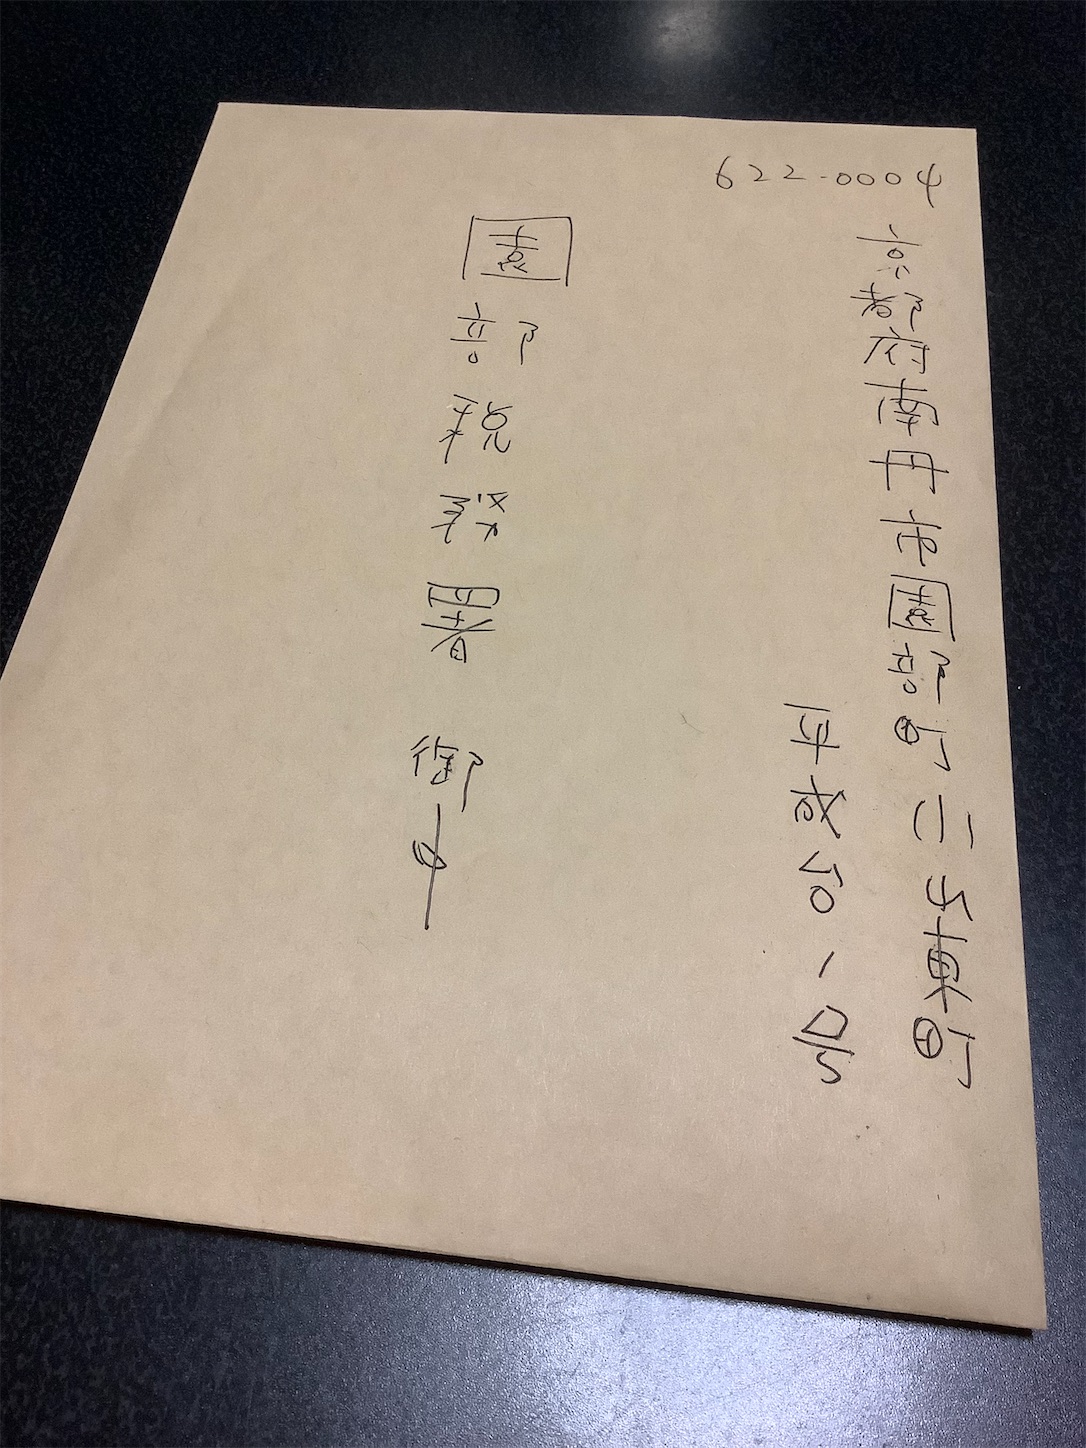 622-0004
京都府南丹市園部町小山東町
平成台一号
園部税務署 御中